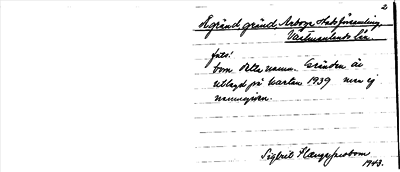 2
gränd, Arboga stadsförsamling,
Västmanlands län
foto!
Som detta namn. Gränden är
utlagd på kartan 1939 men ej
namngiven.
Sigbrit
1943.